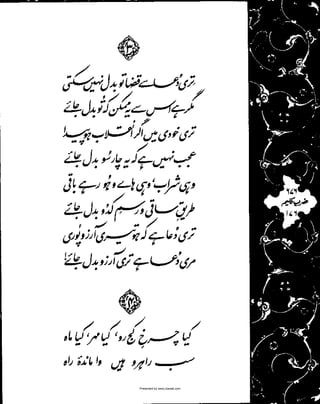 ۳
تری دعا سے قضا تو بدل نہیں سکتی
مگر ہے اس سے یہ ممکن کہ تو بدل جائے
تری خودی میں اگر انقلاب ہو پیدا
عجب نہیں ہے کہ یہ چار سو بدل جائے
وہی شراب، وہی ہاے و ہو رہے باقی
طریقِ ساقی و رسمِ کدو بدل جائے
تری دعا ہے کہ ہو تیری آرزو پوری
مری دعا ہے تری آرزو بدل جائے
۴
کیا چرخِ کج رو، کیا مہر، کیا ماہ
سب راہرو ہیں واماندۂ راہ
۱۷۹
ضربِ کلیم
۱۷۹
Presented by www.ziaraat.com